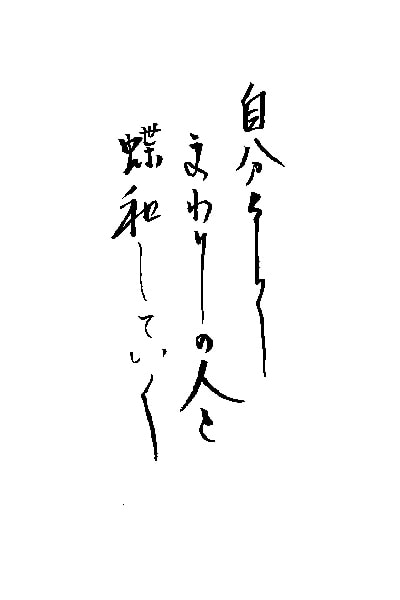 自分らしく
まわりの人と
蝶和していく